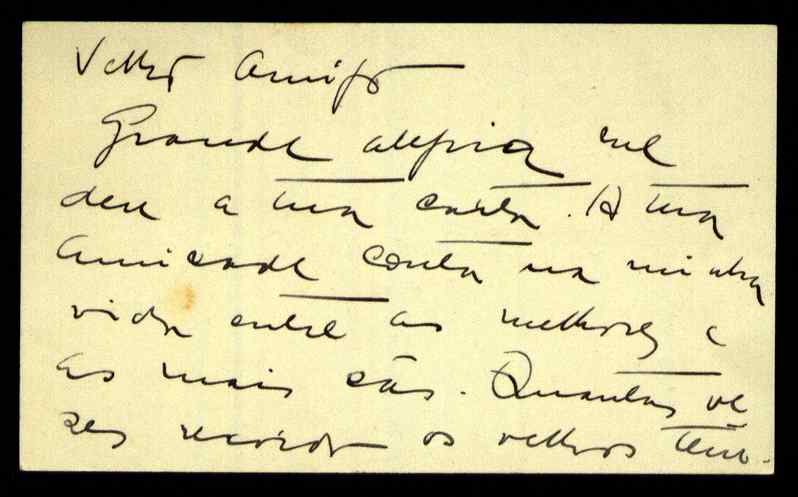 Velho Amigo
Grande alegria me
deu a tua carta. A tua
amizade conta na minha
vida entre as melhores e
as mais sãs. Quantas ve
zes recordo os velhos tem-